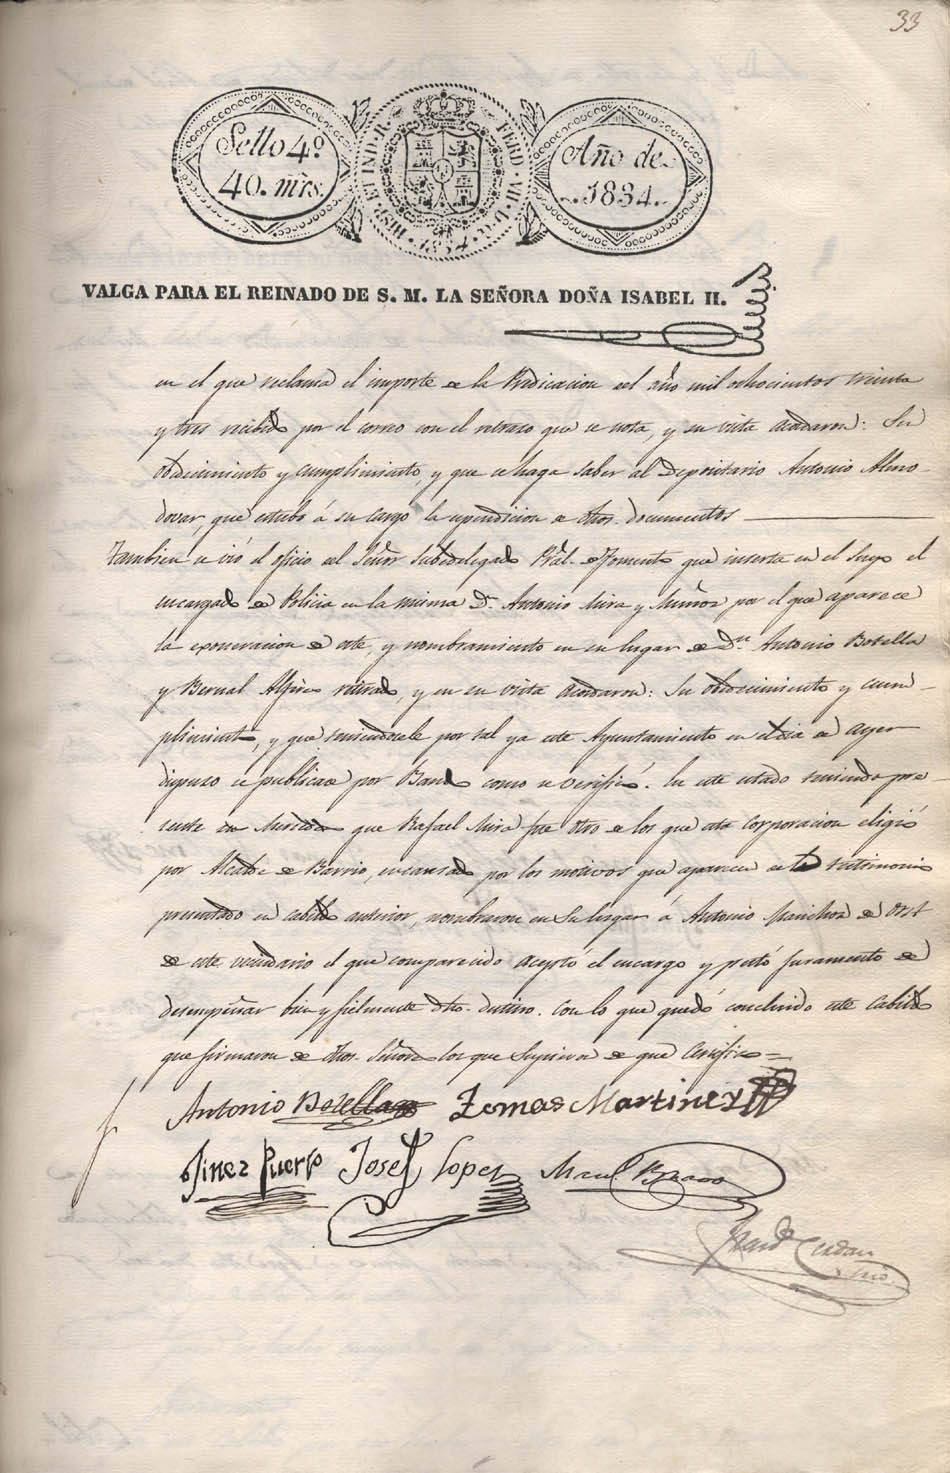 33
Sello 4º
40. mrs.
HISP. ET IND. R. FERD. VII. D. G. 1834.
Año de
1834.
VALGA PARA EL REINADO DE S. M. LA SEÑORA DOÑA ISABEL II.
en el que reclama el importe de la Predicacion del año mil ochocientos treinta
y tres recibido por el correo con el retraso que se nota, y en su vista acordaron: Su
obedecimiento y cumplimiento, y que se haga saber al Depositario Antonio Almo-
dovar, que estubo á su cargo la espendicion de dhos. documentos
Tambien se vió el oficio del Señor Subdelegado Pral. de Fomento que inserta en el suyo el
encargado de Policia en la misma Dn. Antonio Mira y Muñoz por el que aparece
la exoneracion de este, y nombramiento en su lugar de Dn. Antonio Botella
y Bernal Alferez retirado, y en su vista acordaron: Su obedecimiento y cum-
plimiento, y que teniendosele por tal ya este Ayuntamiento en el dia de ayer
dispuso se publicase por Bando como se verificó. En este estado teniendo pre-
sente sus Mercedes que Rafael Mira fue otro de los que esta corporacion eligió
por Alcalde de Barrio, encausado por los motivos que aparecen del testimonio
presentado en cabildo anterior, nombraron en su lugar á Antonio Manchon de
de este vecindario el que comparecido aceptó el encargo y prestó juramento de
desempeñar bien y fielmente dho. destino. Con lo que quedó concluido este Cabildo
que firmaron de dhos. Señores los que supieron de que Certifico=
Antonio Botella Tomas Martinez
Jinez Puerto Josef Lopez Manl. Bravo